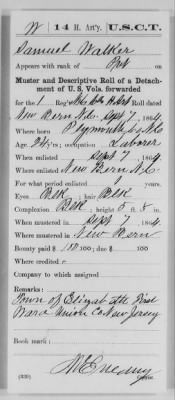 W 14 H. Art'y. U.S.C.T.
Samuel Walker
Appears with rank of Pvt on
Muster and Descriptive Roll of a Detach-
ment of U. S. Vols. forwarded
for the 1 Reg't Roll dated
New Bern N.C. Sept 7, 1864.
Where born Plymouth N.C.
Age 24 y's; occupation Laborer
When enlisted Sept 7, 1864
Where enlisted New Bern N.C.
For what period enlisted years.
Eyes Blk; hair Blk
Complexion Blk; height 5 ft. 8 in.
When mustered in Sept 7, 1864
Where mustered in New Bern
Bounty paid $ 100 100; due $ 100
Where credited
Company to which assigned
Remarks:
Town of Elizabeth First
Ward Union Co New Jersey
Book mark:
(339)